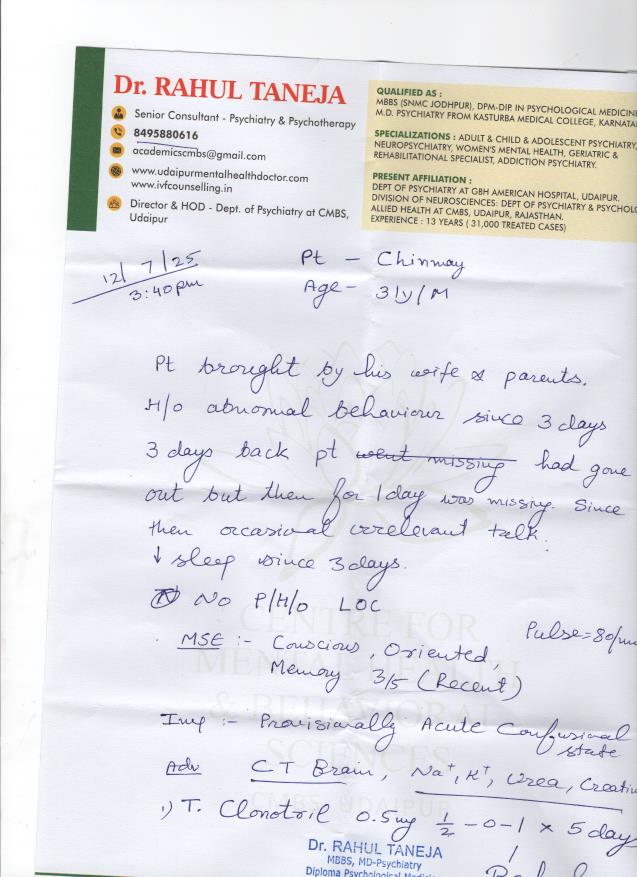 Dr. RAHUL TANEJA
Senior Consultant - Psychiatry & Psychotherapy
8495880616
academicscmbs@gmail.com
www.udaipurmentalhealthdoctor.com
www.ivfcounselling.in
Director & HOD - Dept. of Psychiatry at CMBS,
Udaipur
QUALIFIED AS :
MBBS (SNMC JODHPUR), DPM-DIP. IN PSYCHOLOGICAL MEDICINE
M.D. PSYCHIATRY FROM KASTURBA MEDICAL COLLEGE, KARNATA
SPECIALIZATIONS : ADULT & CHILD & ADOLESCENT PSYCHIATRY,
NEUROPSYCHIATRY, WOMEN'S MENTAL HEALTH, GERIATRIC &
REHABILITATIONAL SPECIALIST, ADDICTION PSYCHIATRY.
PRESENT AFFILIATION :
DEPT OF PSYCHIATRY AT GBH AMERICAN HOSPITAL, UDAIPUR.
DIVISION OF NEUROSCIENCES: DEPT OF PSYCHIATRY & PSYCHOLO
ALLIED HEALTH AT CMBS, UDAIPUR, RAJASTHAN.
EXPERIENCE : 13 YEARS ( 31,000 TREATED CASES)
12/7/25
3:40pm
Pt - Chinmay
Age - 31y/M
Pt brought by his wife & parents.
H/o abnormal behaviour since 3 days
3 days back pt went missing had gone
out but then for 1 day was missing. Since
then occasional irrelevant talk.
↓ sleep since 3 days.
No P/H/o LOC
Pulse = 80/m
MSE :- Conscious, Oriented,
Memory 3/5 (Recent)
Imp :- Provisionally Acute Confusional
state
Adv CT Brain, Na+, K+, Urea, Creatin
1) T. Clonotril 0.5mg ½ - 0 - 1 x 5 days
CENTRE FOR
MENTAL HEALTH
& BEHAVIORAL
SCIENCES
CMBS, UDAIPUR
Dr. RAHUL TANEJA
MBBS, MD-Psychiatry
Diploma Psychological Medici